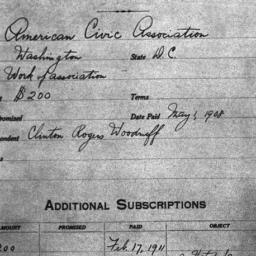 American Civic Association
Washington State D.C.
Work of association
$200 Terms
Date Paid May 1, 1908
Clinton Rogers Woodruff
ADDITIONAL SUBSCRIPTIONS
PROMISED PAID OBJECT
Feb. 17, 1911